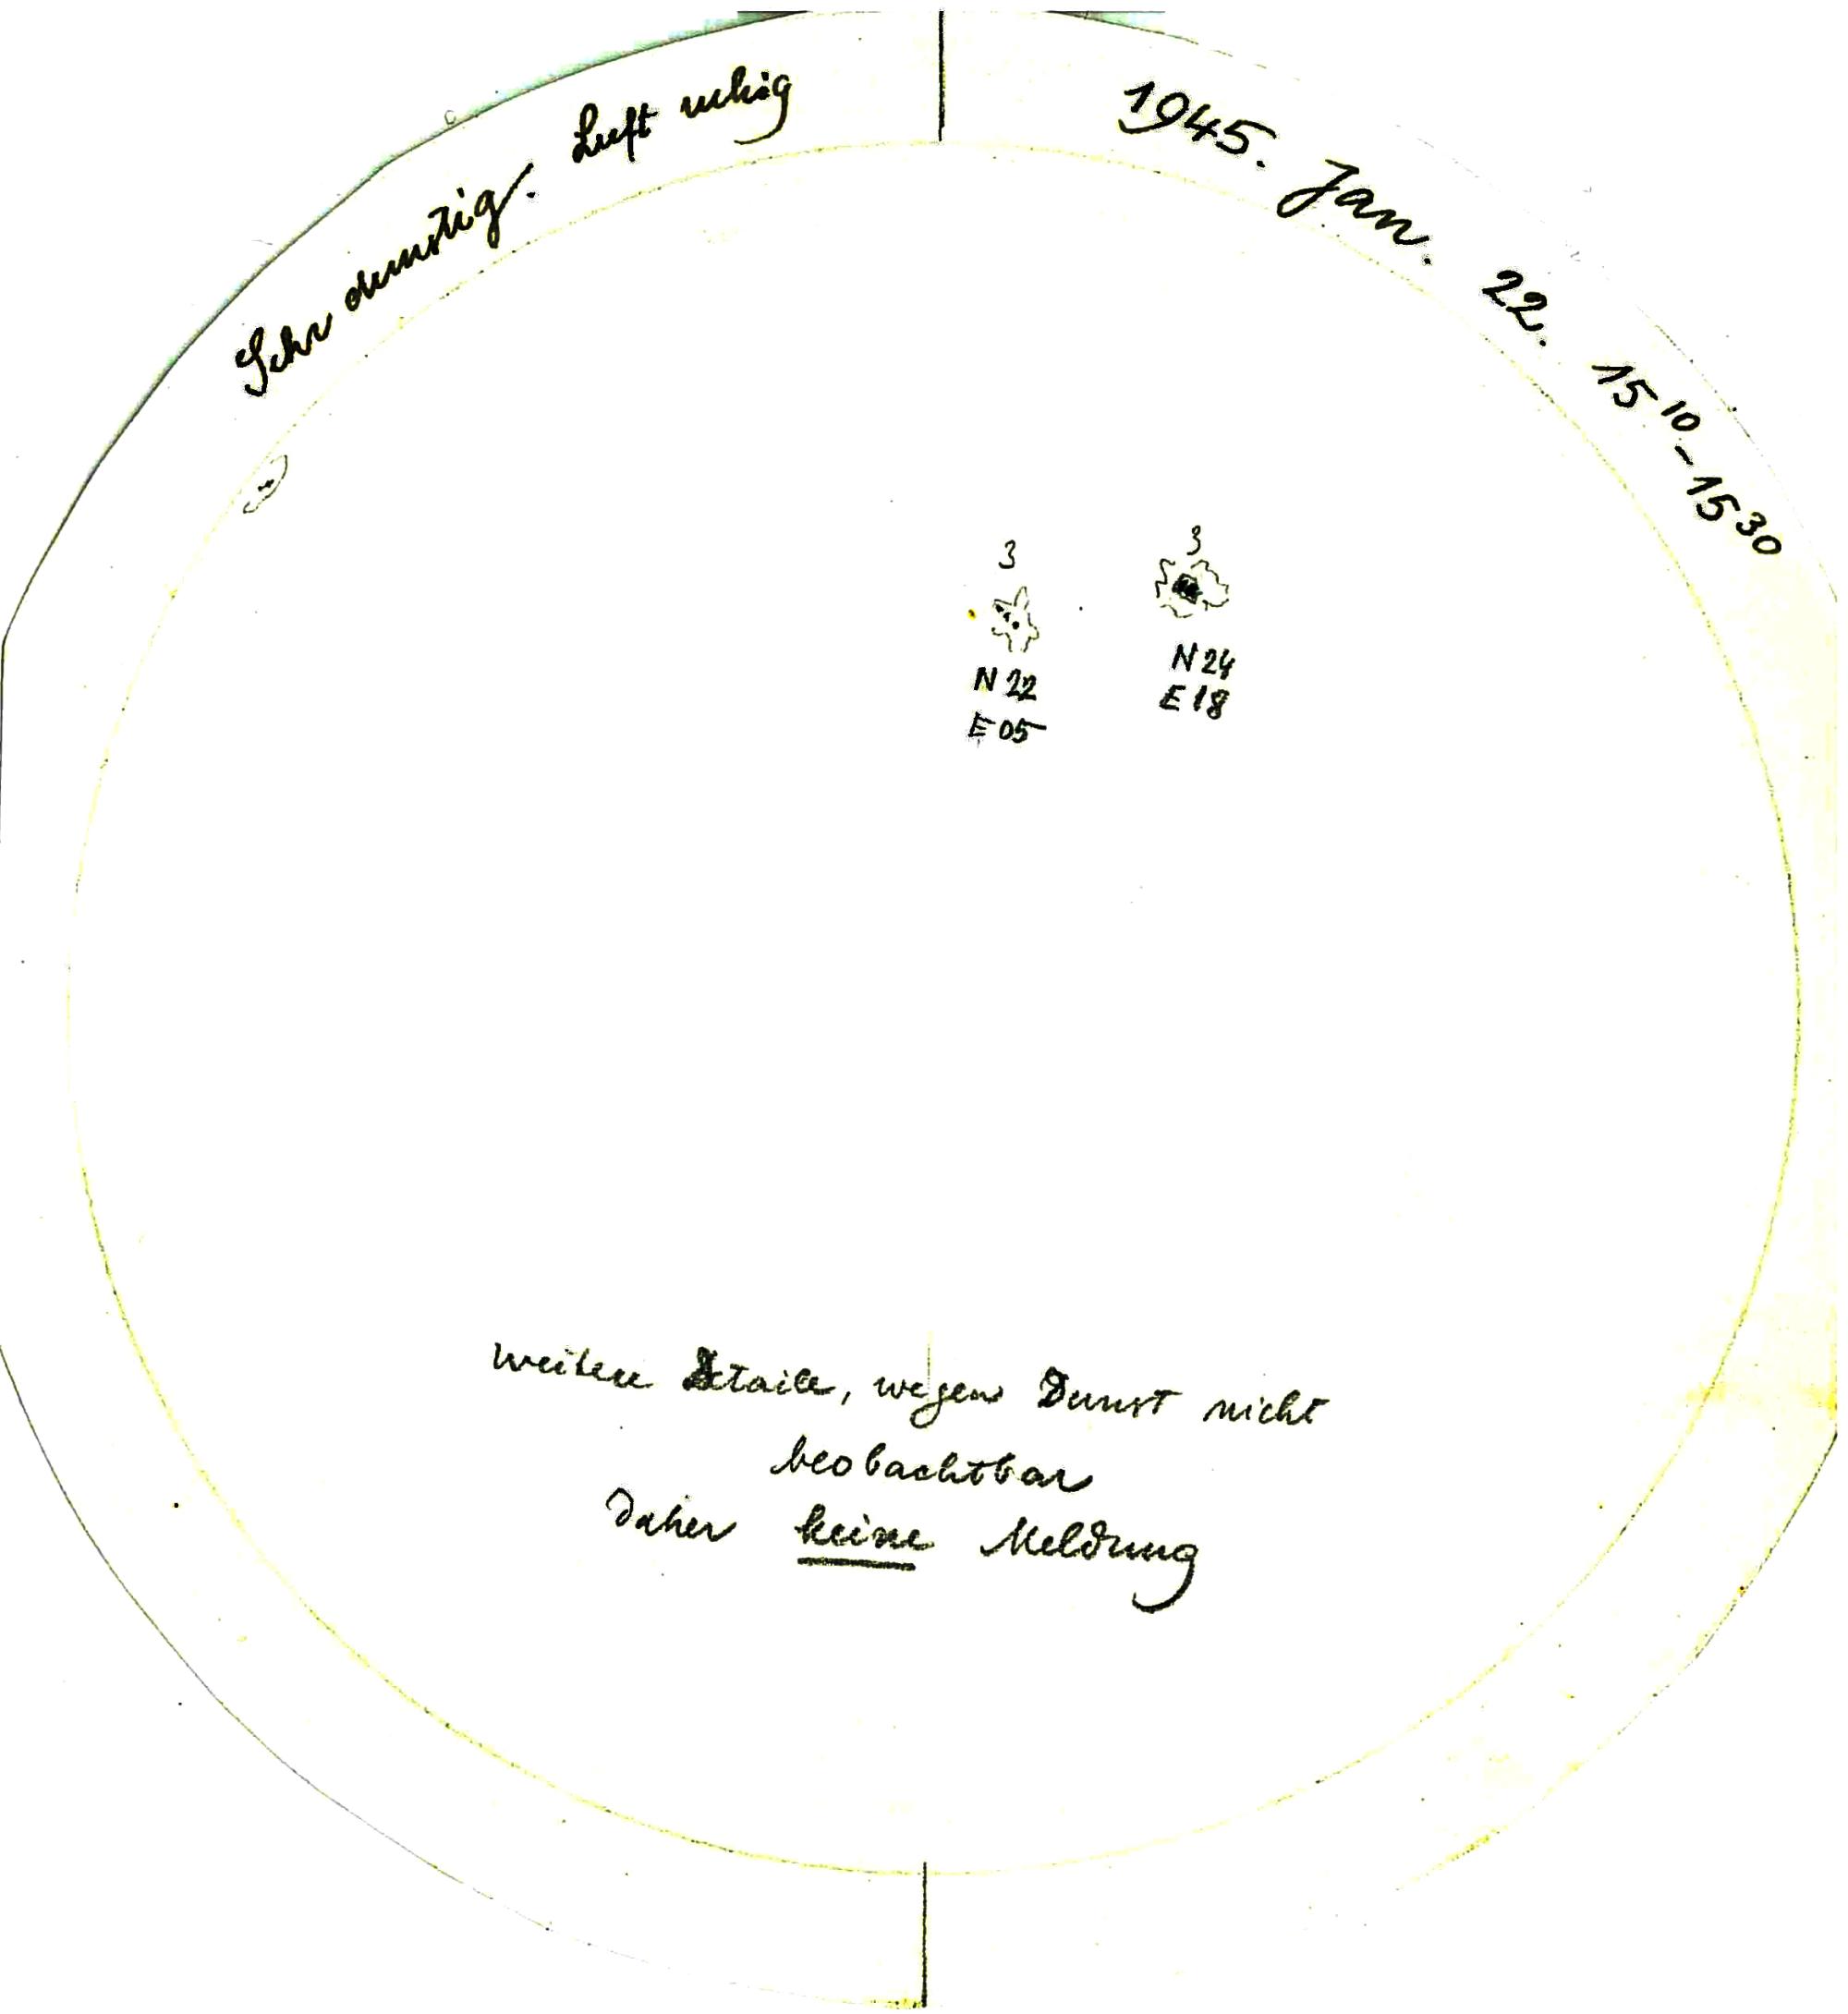 Sehr dunstig. Luft ruhig
1945. Jan. 22. 15 10 - 15 30
3
N 22
E 05
3
N 24
E 18
weitere Details, wegen Dunst nicht
beobachtbar
Daher keine Meldung